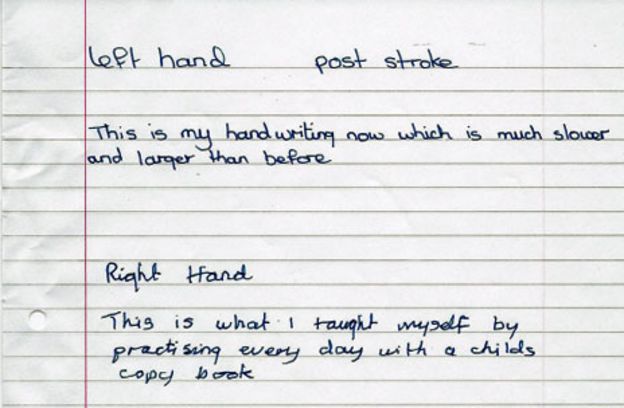 left hand post stroke
This is my handwriting now which is much slower
and larger than before
Right Hand
This is what I taught myself by
practising every day with a childs
copy book